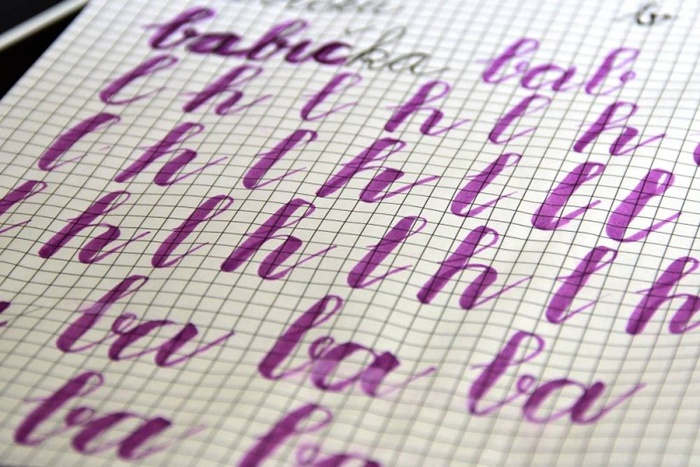 b
babička bab
l h l h l h
l h l h l l l
l h l h l h l h
ba ba ba
ba ba